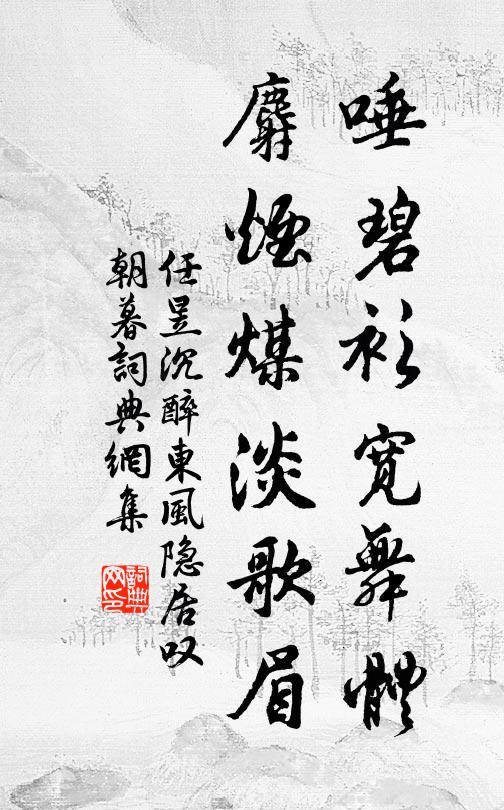 唾碧衫寬舞體
麝煙煤淡歌眉
任昱沉醉東風隐居叹
朝暮詞典網集
詞典网印